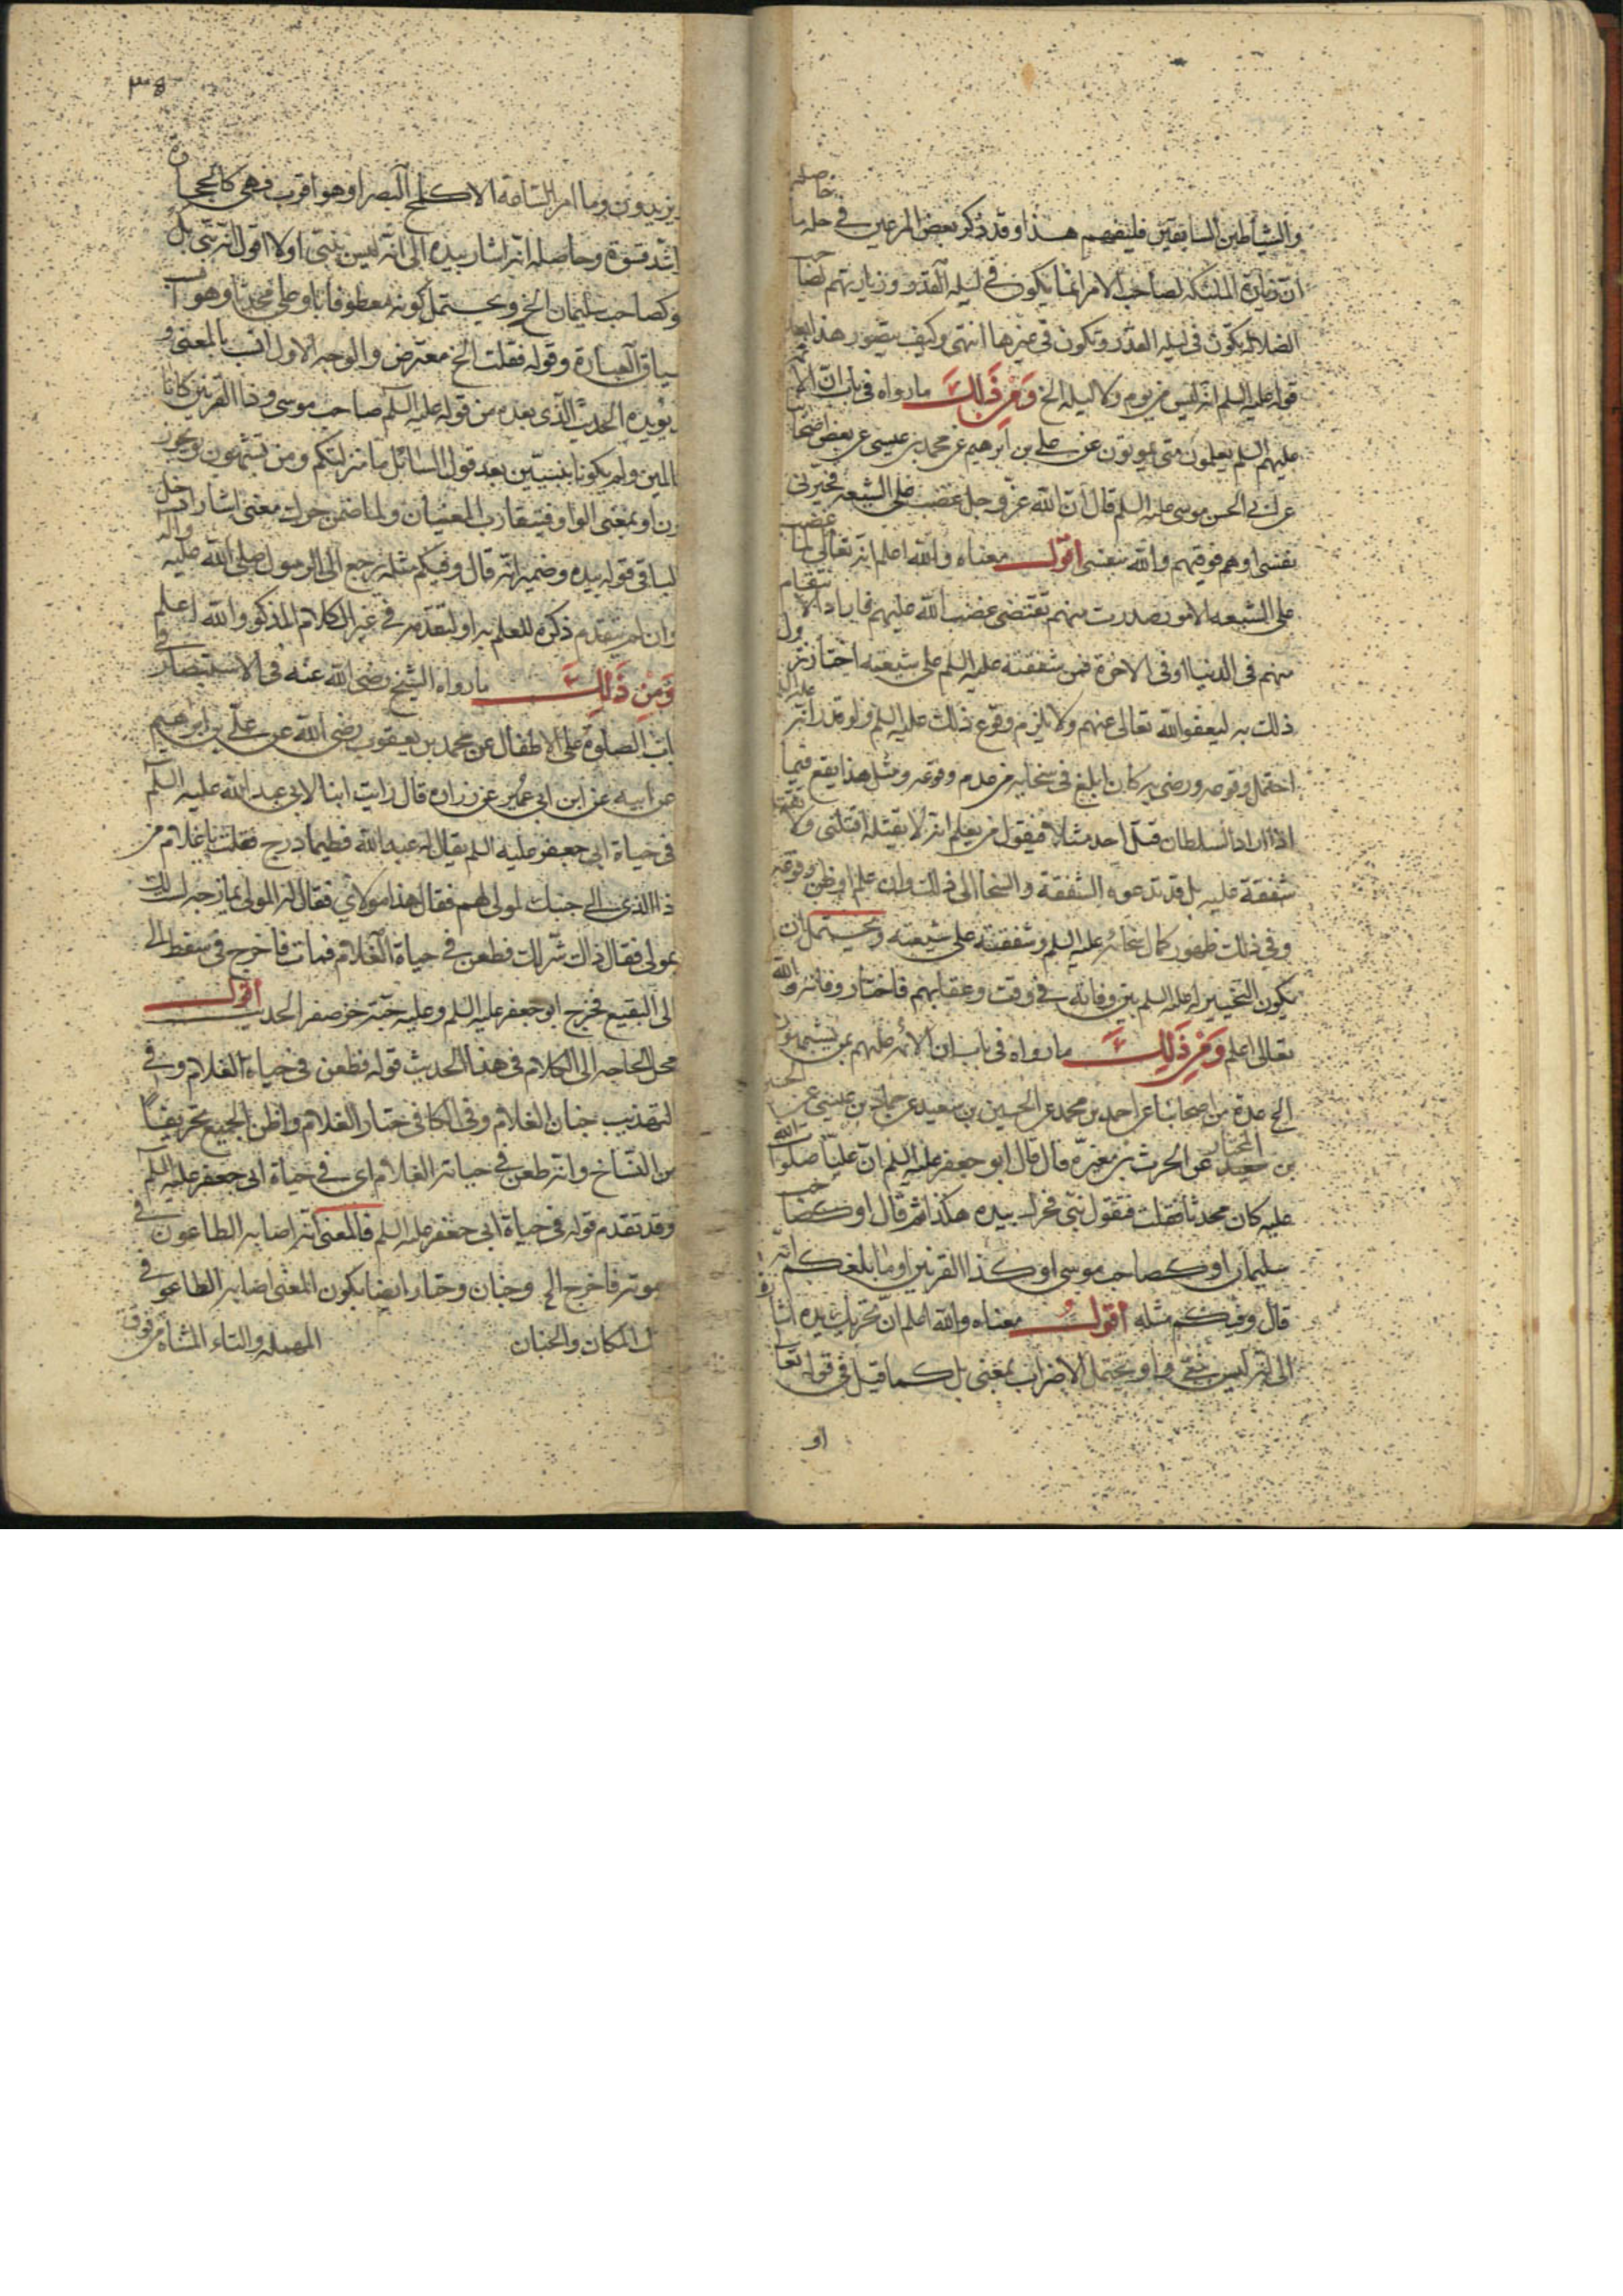 والشياطين السابقين فليفهم هذا وقد ذكر بعض المدعين في حله ما حاصله
ان زيارة الملئكة لصاحب الامر انما يكون في ليلة القدر وزيارتهم لصاحب
الضلالة يكون في ليلة القدر وتكون في غيرها انتهى وكيف يتصور هذا بعد
قوله عليه السلم انه ليس من يوم ولا ليلة الخ وَمِن ذَلِكَ ما رواه في باب ان الائمة
عليهم السلم يعلمون متى يموتون عن علي بن ابرهيم عن محمد بن عيسى عن بعض اصحابنا
عن ابي الحسن موسى عليه السلم قال ان الله عز وجل غضب على الشيعة فخيرني
نفسي او هم فوقيتهم والله بنفسي اقول معناه والله اعلم انه تعالى لما غضب
على الشيعة لامور صدرت منهم تقتضي غضب الله عليهم فاما اراد الانتقام
منهم في الدنيا او في الاخرة فمن شفقته عليه السلم على شيعته اختار نزول
ذلك به ليعفو الله تعالى عنهم ولا يلزم وقوع ذلك عليه السلم ولو قدر انه عليه السلم
احتمل وقوعه ورضى به كان ابلغ في سخائه من عدم وقوعه ومثل هذا يقع فيما
اذا اراد السلطان قتل احد مثلا فيقول من يعلم انه لا يقتله اقتلني ولا تقتله
شفقة عليه بل قد تدعوه الشفقة والسخا الى ذلك وان علم او ظن وقوعه
وفي ذلك ظهور كمال سخائه عليه السلم وشفقته على شيعته ويحتمل ان
يكون التخيير له عليه السلم بين وفاته في وقت وعقابهم فاختار وفاته والله
تعالى اعلم وَمِن ذَلِكَ ما رواه في باب ان الائمة عليهم بمن يشبهون
الخ عدة من اصحابنا عن احمد بن محمد عن الحسين بن سعيد عن حماد بن عيسى عن الحسين
بن المختار عن الحرث بن مغيرة قال قال ابو جعفر عليه السلم ان عليا صلوات الله
عليه كان محدثا فقلت فتقول نبي فحرك بيده هكذا ثم قال او كصاحب
سليمان او كصاحب موسى او كذا القرنين او ما بلغكم انه
قال وفيكم مثله اقول معناه والله اعلم ان تحريك يده اشارة
الى انه ليس بنبي واو يحتمل الاضراب بمعنى بل كما قيل في قوله تعالى
او
٣٥
يزيدون وما امر الساعة الا كلمح البصر او هو اقرب فهي كالحجارة
اشد قسوة وحاصله انه اشار بيده الى انه ليس بنبي اولا اقول انه نبي بل
وكصاحب سليمان الخ ويحتمل كونه معطوفا باو على محدثا وهو انسب
سياق العبارة وقوله فقلت الخ معترض والوجه الاول انسب بالمعنى و
يؤيده الحديث الذي بعده من قوله عليه السلم صاحب موسى وذا القرنين كانا
عالمين ولم يكونا نبيين بعد قول السائل ما منزلتكم ومن تشبهون ويجوز
كون او بمعنى الواو فيتقارب المعنيان ولما ضمن حرك معنى اشار ادخل
الباء في قوله بيده وضمير انه قال وفيكم مثله يرجع الى الرسول صلى الله عليه وآله
وان لم يتقدم ذكره للعلم به او لتقدمه في غير الكلام المذكور والله اعلم
وَمِن ذَلِكَ ما رواه الشيخ رضي الله عنه في الاستبصار في
باب الصلوة على الاطفال عن محمد بن يعقوب رضي الله عن علي بن ابراهيم
عن ابيه عن ابن ابي عمير عن زراره قال رايت ابنا لابي عبد الله عليه السلم
في حياة ابي جعفر عليه السلم يقال له عبد الله فطيما درج فقلت يا غلام من
ذا الذي الى جنبك لمولى لهم فقال هذا مولاي فقال له المولى يمازحه لست لك
بمولى فقال ذاك شر لك فطعن في حياة الغلام فمات فاخرج في سفط الى
الى البقيع فخرج ابو جعفر عليه السلم وعليه جبة خز صفر الحديث اقول
محل الحاجه الى الكلام في هذا الحديث قوله فطعن في حياة الغلام وفي
التهذيب جنان الغلام وفي الكافي حتار الغلام واظن الجميع تحريفا
من النساخ وانه طعن في حياته الغلام اي في حياة ابي جعفر عليه السلم
وقد تقدم قوله في حياة ابي جعفر عليه السلم فالمعنى انه اصابه الطاعون في
موته فاخرج الخ وجنان وحتار ايضا يكون المعنى اصابه الطاعون في
المكان والجنان المهملة والتاء المثناة من فوق